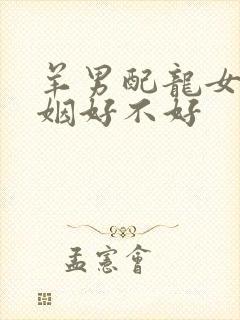 羊男配龍女
姻好不好
孟憲會